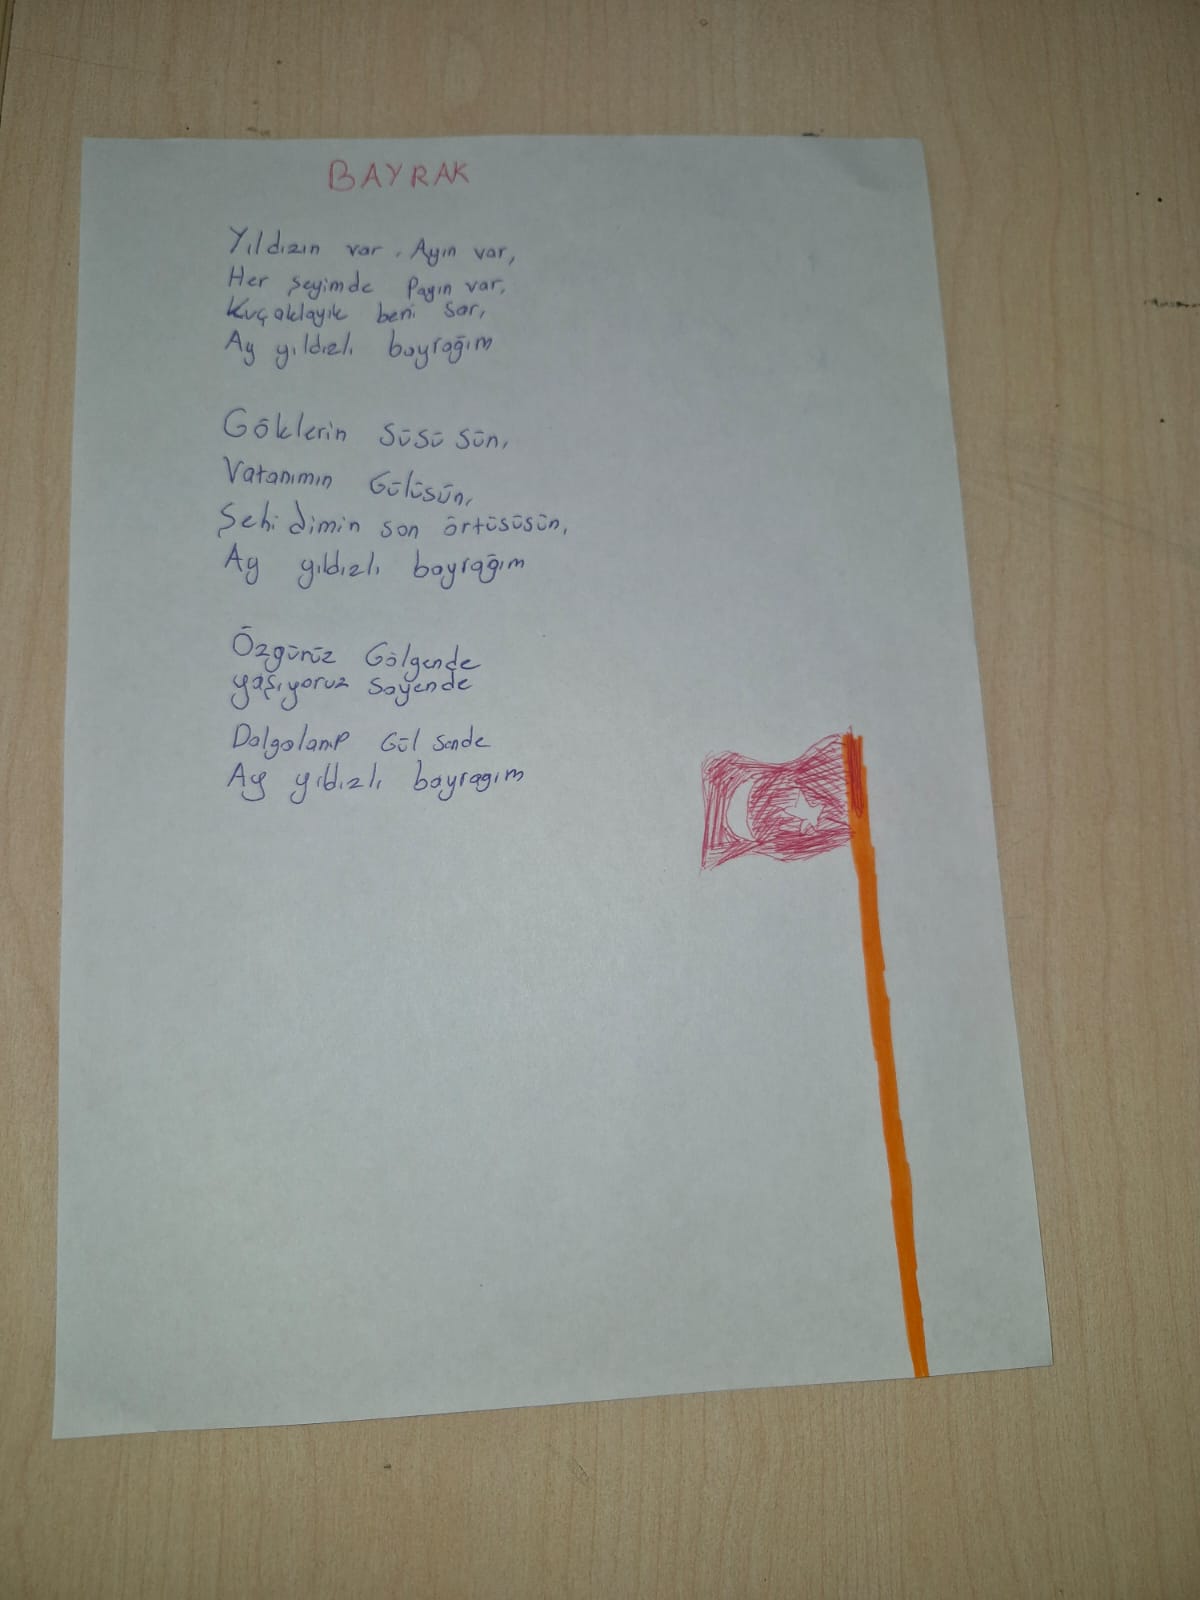 BAYRAK
Yıldızın var, Ayın var,
Her şeyimde Payın var,
Kuçaklayık beni sar,
Ay yıldızlı bayrağım
Göklerin süsü sün,
Vatanımın Gülüsün,
Şehi dimin son örtüsüsün,
Ay yıldızlı bayrağım
Özgürüz Gölgende
yaşıyoruz sayende
Dalgalanıp Gül sende
Ay yıldızlı bayragım